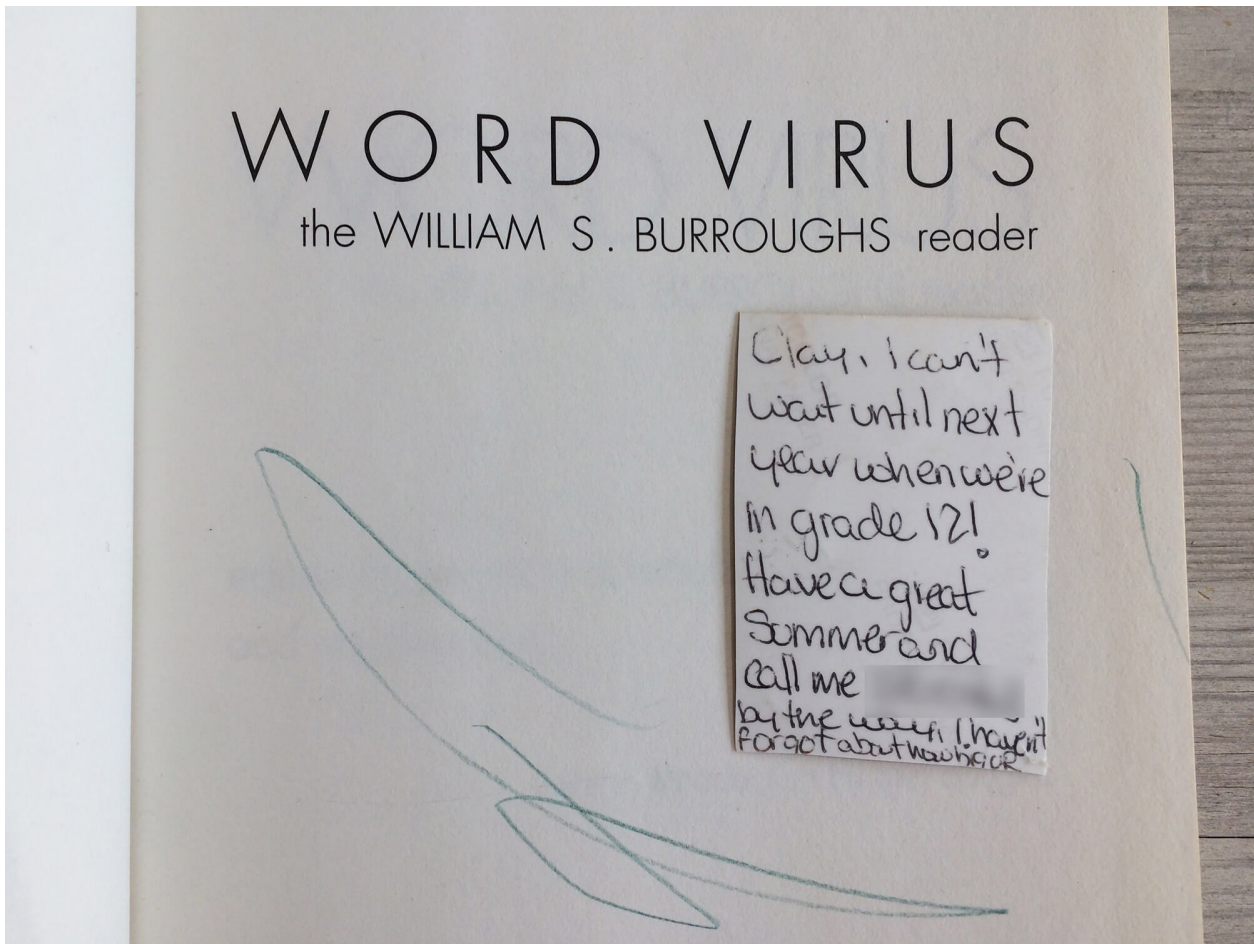 WORD VIRUS
the WILLIAM S. BURROUGHS reader
Clay, i can't
wait until next
year when we're
in grade 12!
Have a great
Summer and
call me
by the way, I haven't
forgot about